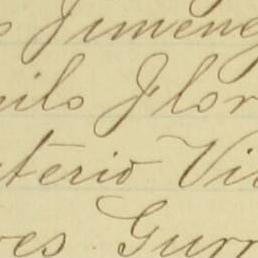 s Jimene
nilo Flor
terio Vi
es Gurr